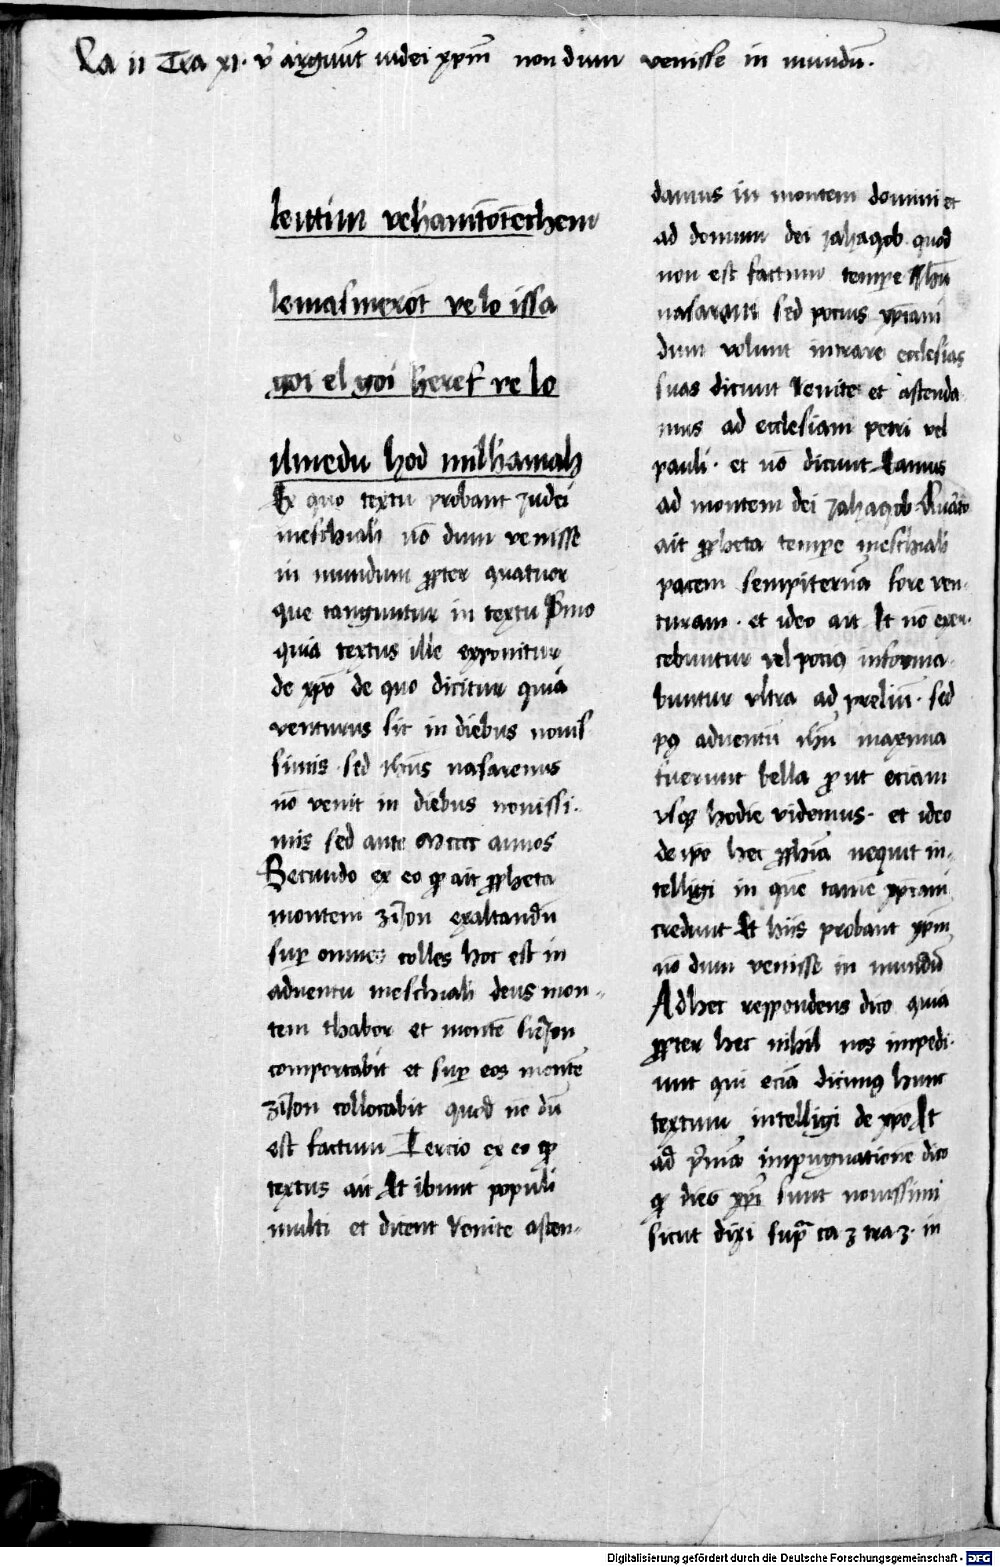 Ca ii Tra xi. v̄ arguūt iudei xpm̄ non dum venisse in mundū.
leittim vehanitōtēchem
lemasmerōt ve lo issa
goi el goi heref ve lo
ilmedu hod milhamah
Ex quo textu probant Judei
meschiah nō dum venisse
in mundum ꝓpter quatuor
que tanguntur in textu Pmo
quia textus ille exponitur
de xpō de quo dicitur quia
venturus sit in diebus nouis
simis sed ihūs nasarenus
nō venit in diebus nouissi-
mis sed ante Mcccc annos
Secundo ex eo ꝙ ait ꝓpheta
montem zion exaltandū
sup omnes colles hoc est in
aduentu meschiah deus mon-
tem thabor et montē
comportabit et sup eos montē
zion collocabit quod ne dū
est factum Tercio ex eo ꝙ
textus ait Et ibunt populi
multi et dicent Venite ascen-
damus in montem domini et
ad domum dei Jahaqob quod
non est factum tempe ihū
nasareni sed pocius xpiani
dum volunt intrare ecclesias
suas dicunt Venite et astenda
mus ad ecclesiam petri vel
pauli. et nō dicunt Eamus
ad montem dei Jahaqob Quarto
ait ꝓpheta tempe meschiah
pacem sempiternā fore ven-
turam. et ideo ait Et nō exer-
cebuntur vel pocius informa-
buntur vltra ad preliū. sed
pꝯ aduentū ihū maxima
fuerunt bella ꝓ ut eciam
vsqꝫ hodie videmus. et ideo
de xpo hec ꝓphīa nequit in-
telligi in quē tamē xpiani
credunt Et hiis probant xpm̄
nō dum venisse in mundū
Ad hec respondens dico quia
ꝓpter hec nihil nos impedi-
unt qui eciā dicimꝯ hunc
textum intelligi de xpo Et
ad p̄mā impugnationē dico
ꝙ dies xpi sunt nouissimi
sicut dixi sup̄ ca 3 tra 3. in
Digitalisierung gefördert durch die Deutsche Forschungsgemeinschaft - DFG